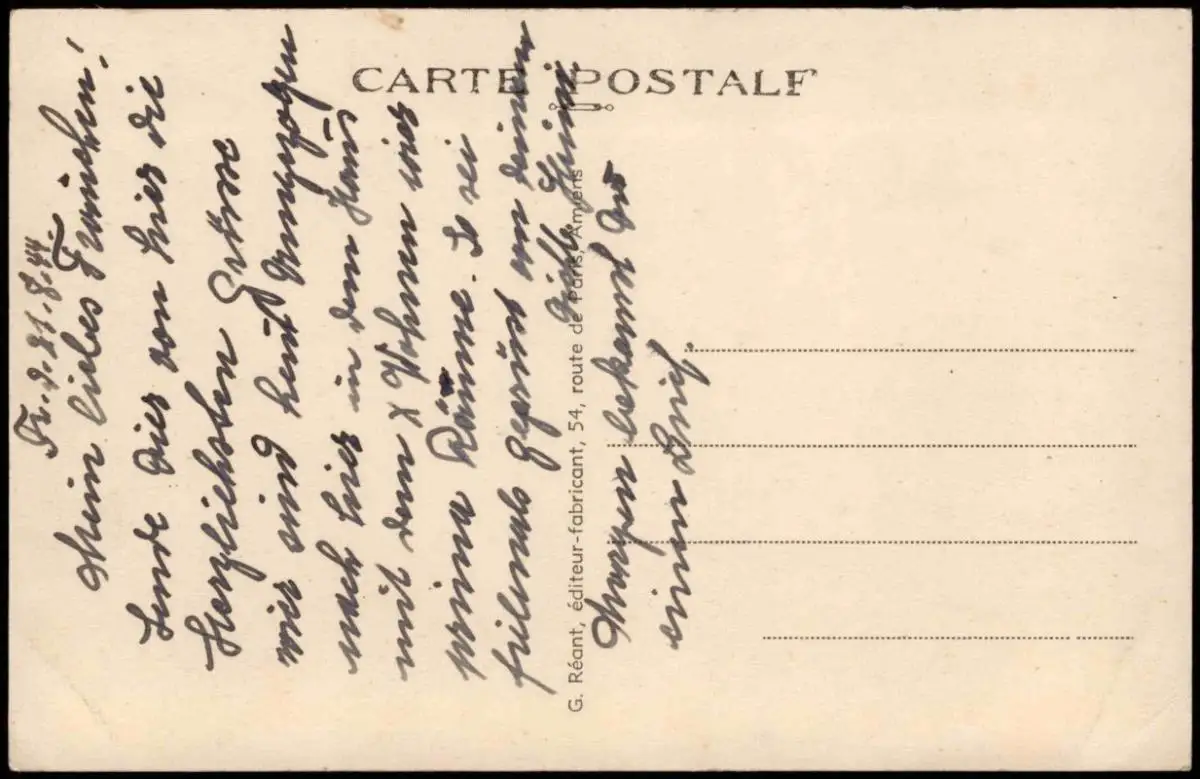 CARTE POSTALE
G. Réant, éditeur-fabricant, 54, route de Paris, Amiens
Fr. d. 21.8.44.
Mein liebes Frauchen!
Sende Dir von hier die
Herzlichsten Grüße
wir sind heut umgezogen
nach hier in dem Haus
mit dem x Wohnen wir
prima Räume. So sei
gegrüßt von deinem
Heini
Morgen bekomst Du
einen Brief.